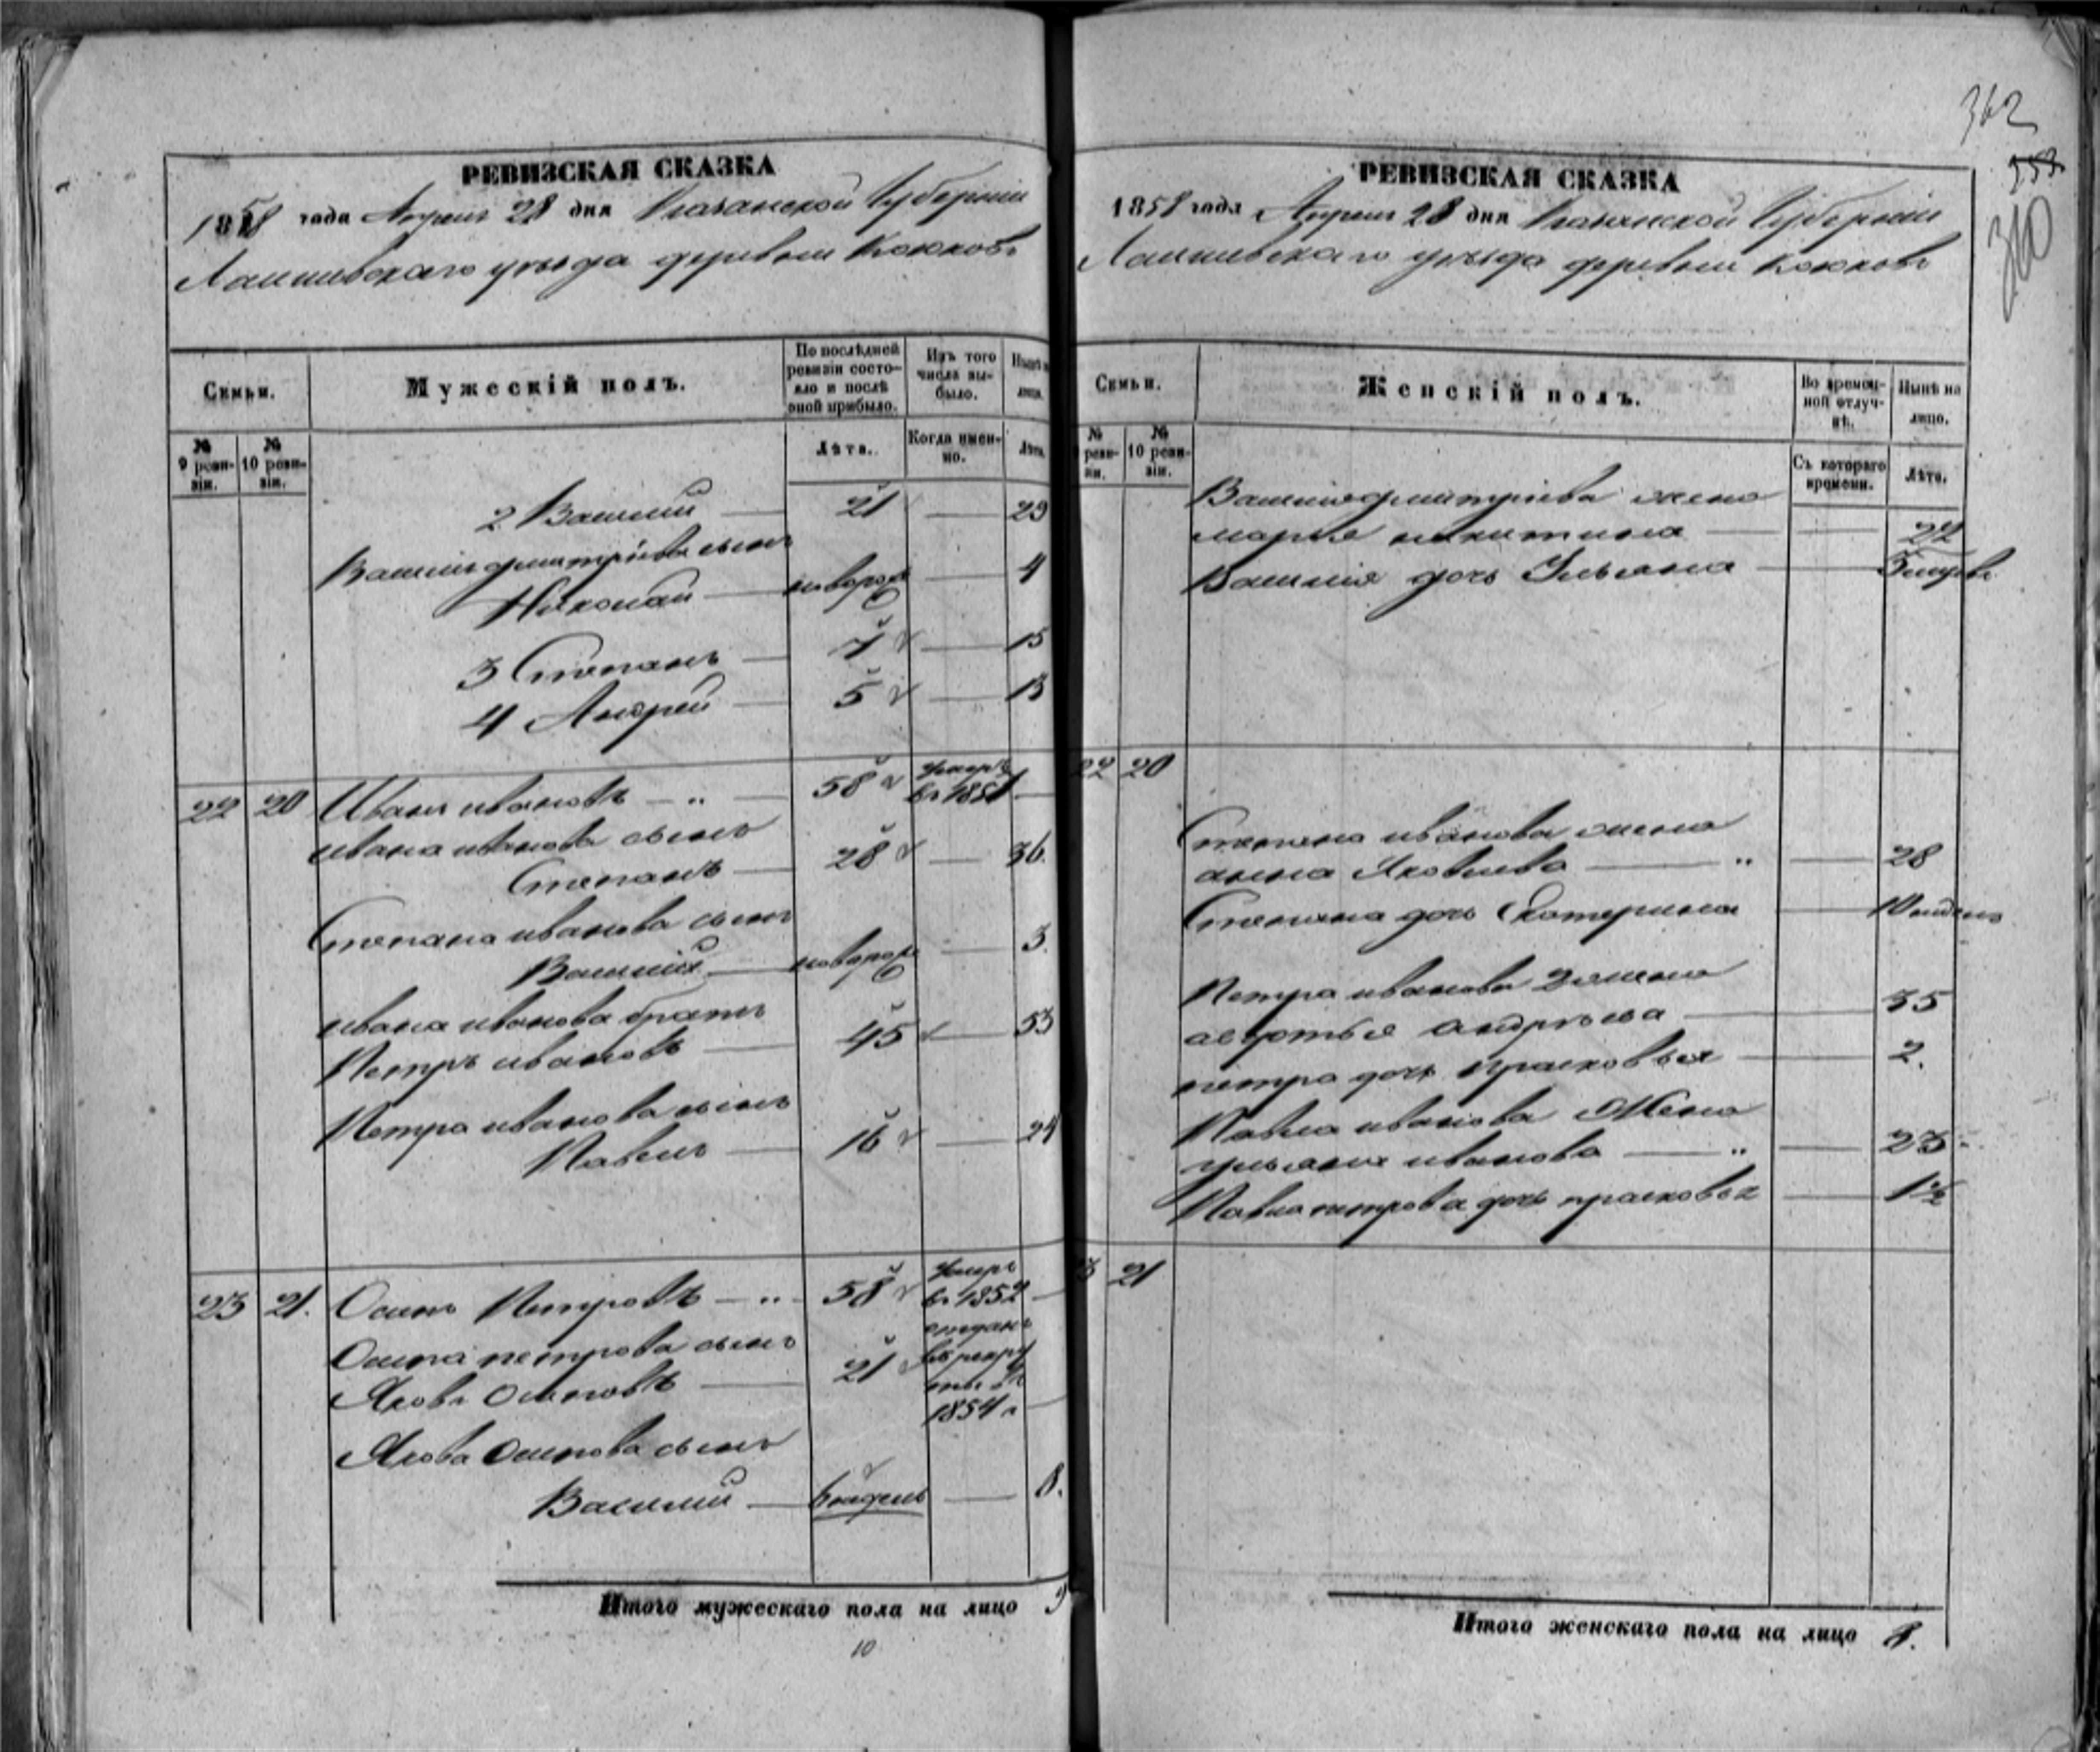 362
353
360
РЕВИЗСКАЯ СКАЗКА
1858 года Апреля 28 дня Казанской Губерніи
Лаишевскаго уѣзда деревни Кокковъ
Семьи.
Мужескій полъ.
По послѣдней ревизіи состо-
яло и послѣ
оной прибыло.
Изъ того
числа вы-
было.
Нынѣ на
лицо.
№
9 реви-
зіи.
№
10 реви-
зіи.
Лѣта.
Когда имен-
но.
Лѣта.
2 Василий — 21 — 29
Василія дмитріева сынъ
Николай — новорож — 4
3 Степанъ — 7 — 15
4 Андрей — 5 — 13
22 20 Иванъ ивановъ — „ — 58 умеръ
въ 1851 —
ивана иванова сынъ
Степанъ — 28 — 36.
Степана иванова сынъ
Василий — новорож — 3.
ивана иванова братъ
Петръ ивановъ — 45 — 53
Петра иванова сынъ
Павелъ — 16 — 24
23 21. Осипъ Петровъ — „ 58 умеръ
въ 1852 —
Осипа петрова сынъ
Яковъ Осиповъ — 21 отданъ
въ рекру
ты въ
1854 г —
Якова Осипова сынъ
Василий — 6 недель — 8.
Итого мужескаго пола на лицо 9
10
РЕВИЗСКАЯ СКАЗКА
1858 года Апреля 28 дня Казанской Губерніи
Лаишевскаго уѣзда деревни Кокковъ
Семьи.
Женскій полъ.
Во времен-
ной отлуч-
кѣ.
Нынѣ на
лицо.
№
9 реви-
зіи.
№
10 реви-
зіи.
Съ котораго
времени.
Лѣта.
Василия дмитріева жена
марья никитина — — 22
Василія дочь Ульяна —
22 20
Степана иванова жена
анна Яковлева — „ — 28
Степана дочь Екатерина — 10 недель
Петра иванова 2 жена
авдотья андреева — 35
петра дочь прасковья — 2.
Павла иванова Жена
ульяна иванова — „ — 23
Павла петрова дочь прасковья — 1½
23 21
Итого женскаго пола на лицо 8.